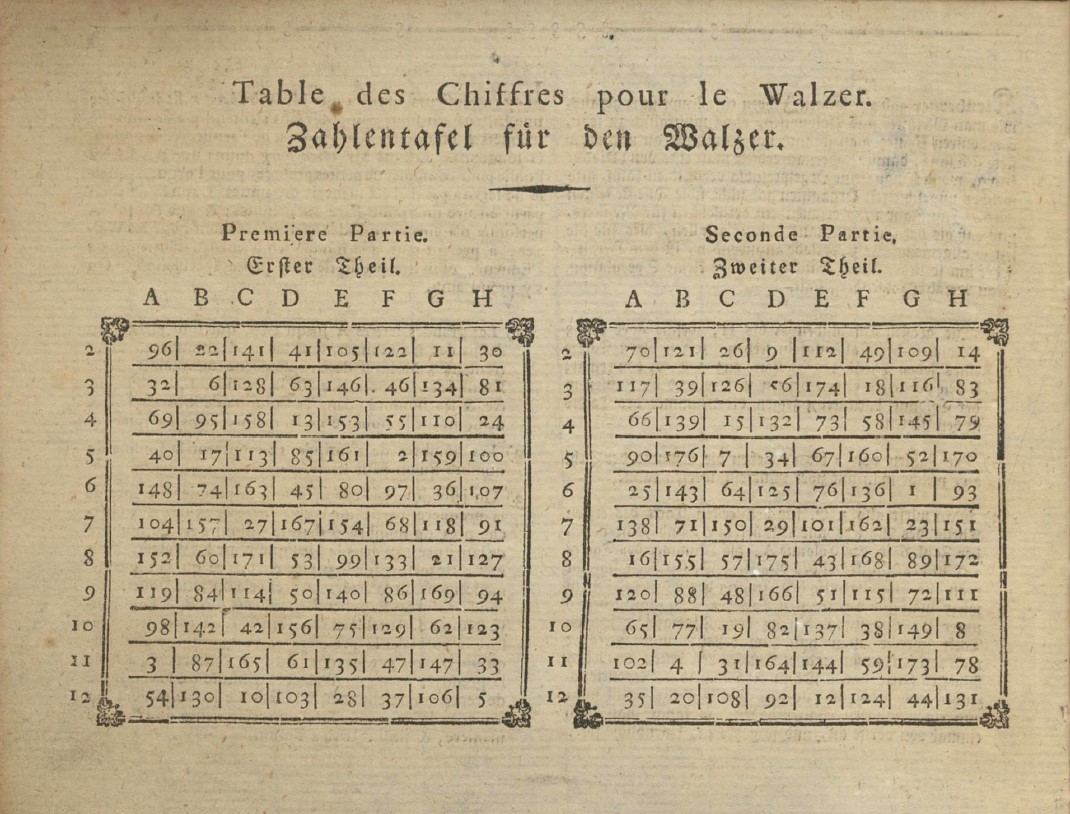 Table des Chiffres pour le Walzer.
Zahlentafel für den Walzer.
Premiere Partie.
Erster Theil.
A B C D E F G H
2 96 22 141 41 105 122 11 30
3 32 6 128 63 146 46 134 81
4 69 95 158 13 153 55 110 24
5 40 17 113 85 161 2 159 100
6 148 74 163 45 80 97 36 107
7 104 157 27 167 154 68 118 91
8 152 60 171 53 99 133 21 127
9 119 84 114 50 140 86 169 94
10 98 142 42 156 75 129 62 123
11 3 87 165 61 135 47 147 33
12 54 130 10 103 28 37 106 5
Seconde Partie.
Zweiter Theil.
A B C D E F G H
2 70 121 26 9 112 49 109 14
3 117 39 126 56 174 18 116 83
4 66 139 15 132 73 58 145 79
5 90 176 7 34 67 160 52 170
6 25 143 64 125 76 136 1 93
7 138 71 150 29 101 162 23 151
8 16 155 57 175 43 168 89 172
9 120 88 48 166 51 115 72 111
10 65 77 19 82 137 38 149 8
11 102 4 31 164 144 59 173 78
12 35 20 108 92 12 124 44 131